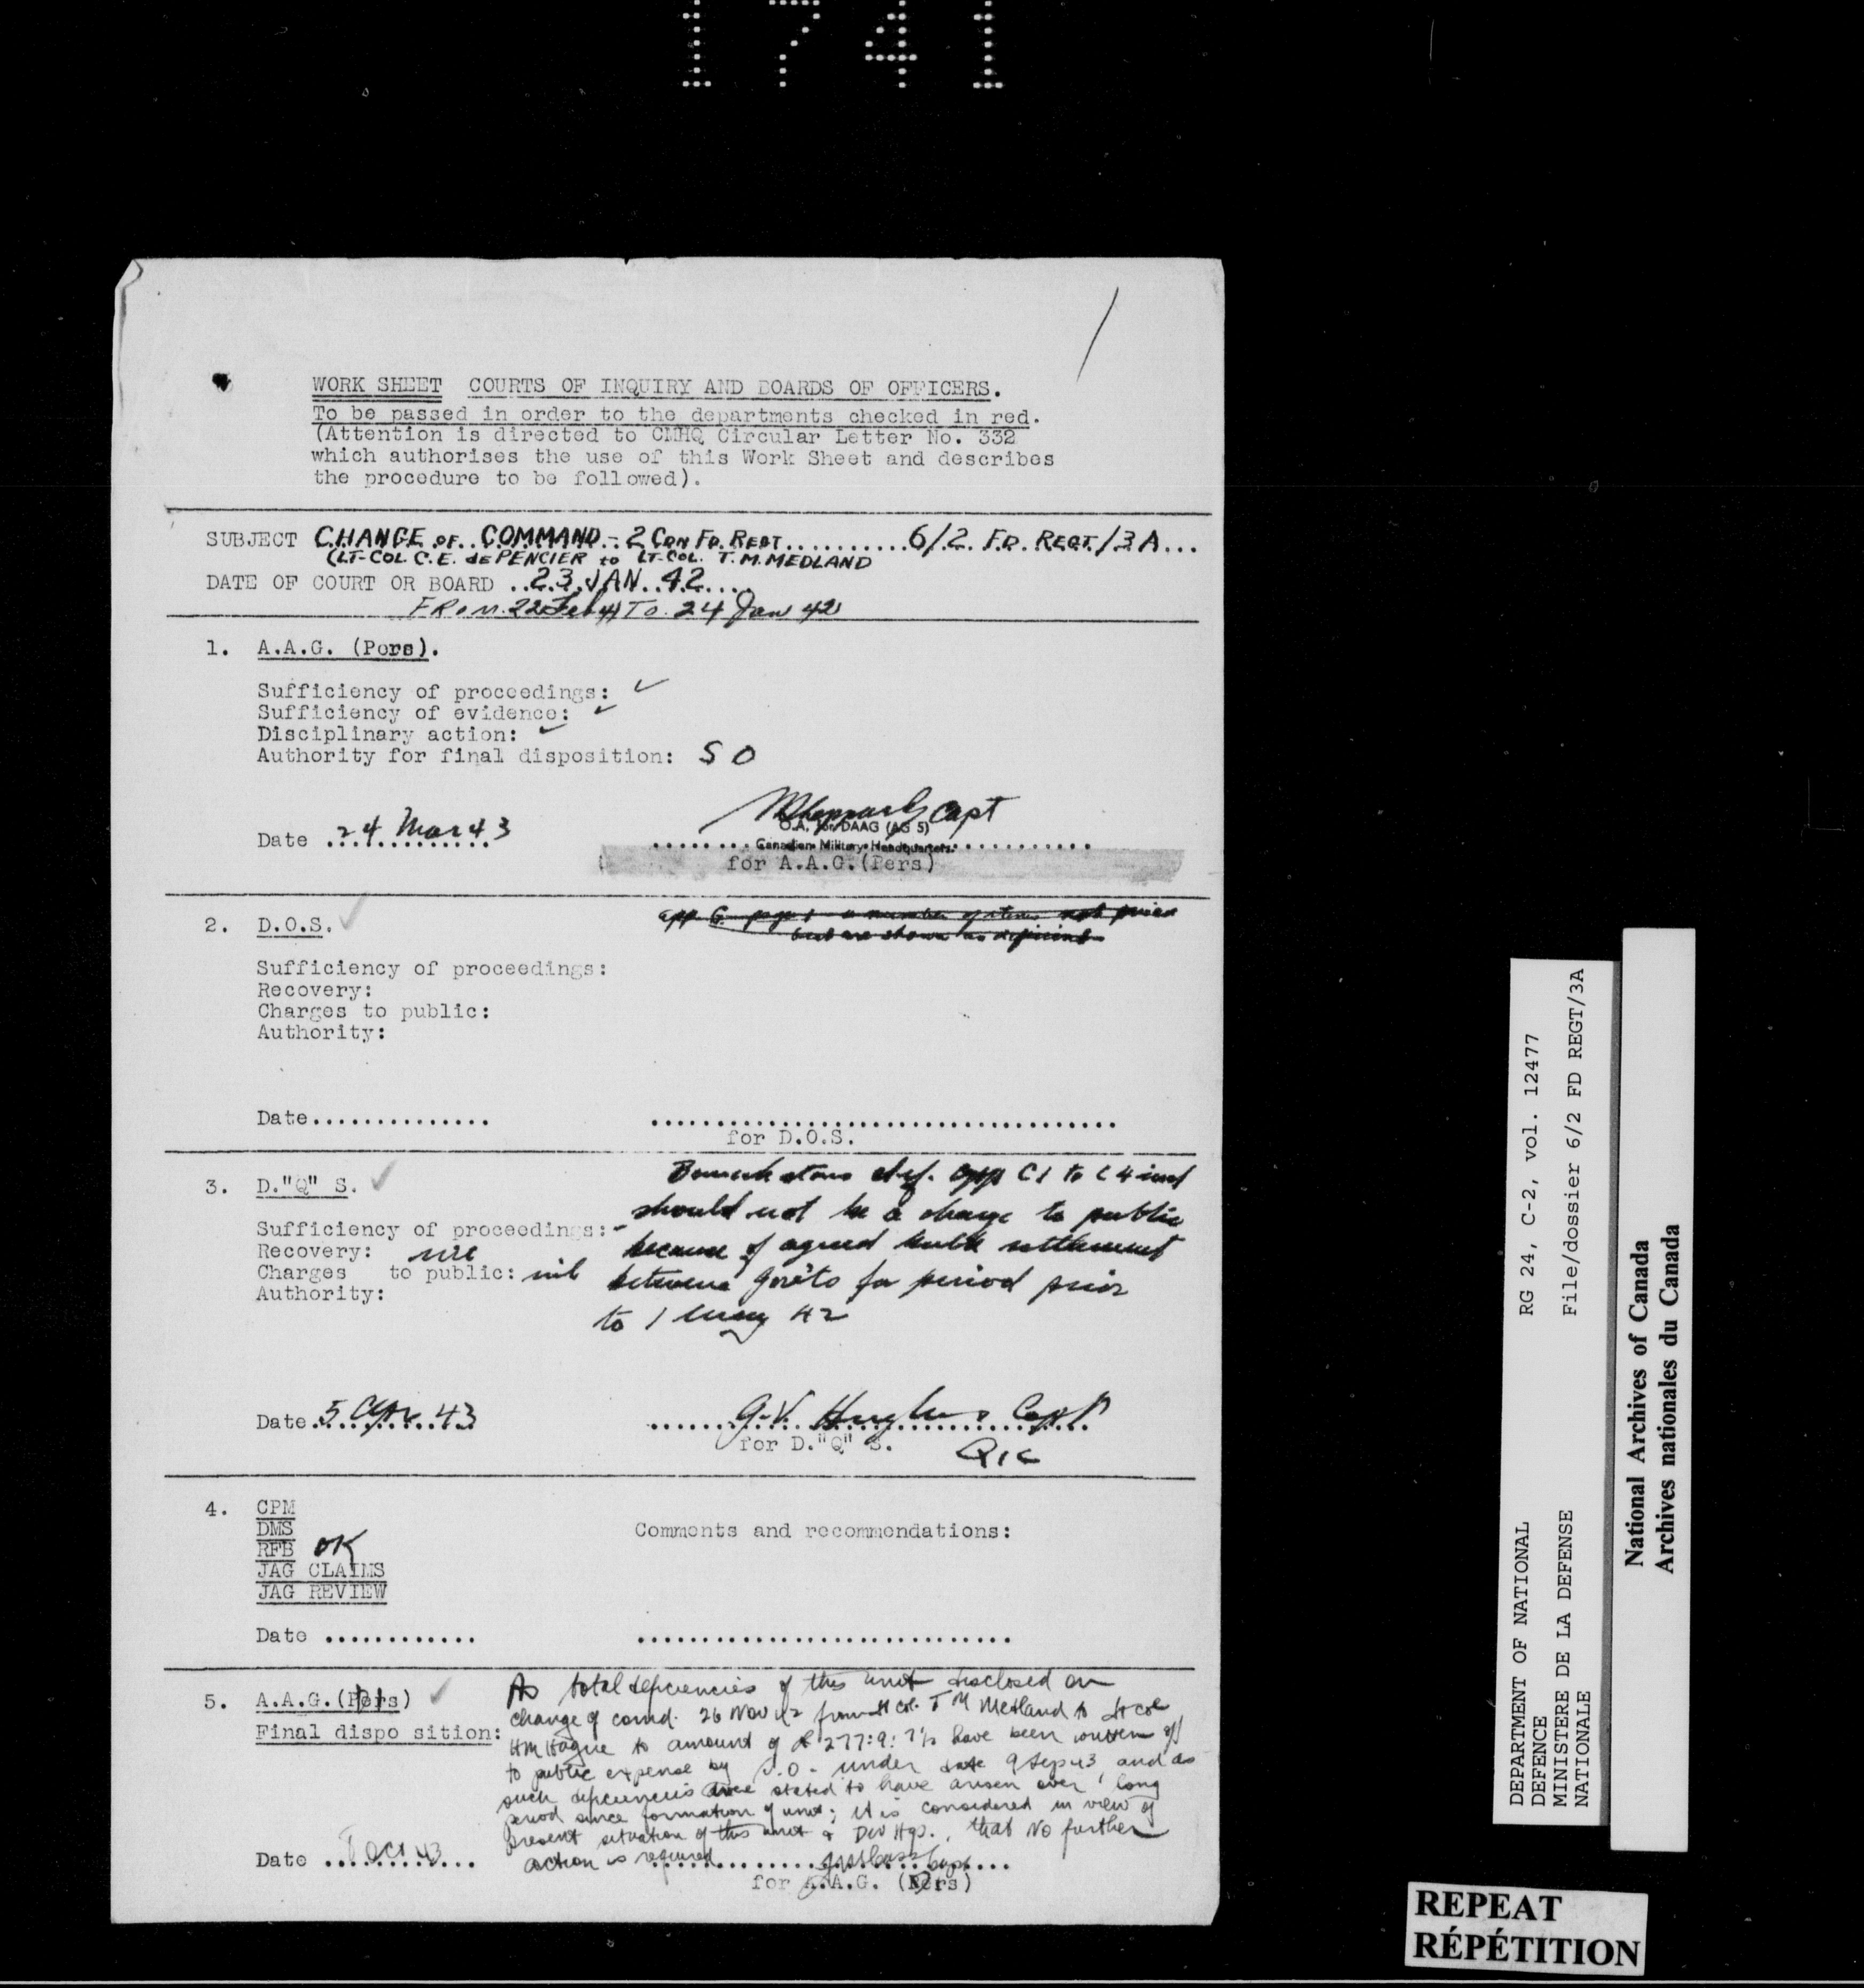 1741
WORK SHEET COURTS OF INQUIRY AND BOARDS OF OFFICERS.
To be passed in order to the departments checked in red.
(Attention is directed to CMHQ Circular Letter No. 332
which authorises the use of this Work Sheet and describes
the procedure to be followed).
SUBJECT CHANGE OF COMMAND - 2 CDN FD. REGT..........6/2. FD. REGT/3A...
(LT-COL. C.E. dePENCIER to LT-COL. T.M. MEDLAND
DATE OF COURT OR BOARD ..23.JAN..42....
FROM 22 Feb 41 TO 24 Jan 42
1. A.A.G. (Pers).
Sufficiency of proceedings: ✓
Sufficiency of evidence: ✓
Disciplinary action: ✓
Authority for final disposition: S O
Capt
O.A. for DAAG (AG 5)
Date 24 Mar 43
Canadian Military Headquarters
for A.A.G.(Pers)
2. D.O.S. ✓
app G page 1 a number of items not priced
but are shown as deficient
Sufficiency of proceedings:
Recovery:
Charges to public:
Authority:
Date..............
for D.O.S.
3. D."Q" S. ✓
Barrack stores def. app C1 to C4 incl
should not be a charge to public
because of agreed bulk settlement
between gov'ts for period prior
to 1 May 42
Sufficiency of proceedings:
Recovery: nil
Charges to public: nil
Authority:
Date 5 Apr. 43
G.V. Hughes Capt
for D."Q" S.
Q1c
4. CPM
DMS
RFB OK
JAG CLAIMS
JAG REVIEW
Comments and recommendations:
Date ............
5. A.A.G.(Pers) ✓
Final disposition:
As total deficiencies of this unit disclosed on
change of comd. 26 Nov 42 from Lt col. T M Medland to Lt col
HM Hague to amount of £277:9: have been written off
to public expense by S.O. under date 9 Sep 43, and as
such deficiencies are stated to have arisen over long
period since formation of unit; it is considered in view of
present situation of this unit & Div Hqs., that no further
action is required
Date Oct 43
Capt
for A.A.G. (Pers)
DEPARTMENT OF NATIONAL
DEFENCE
MINISTERE DE LA DEFENSE
NATIONALE
RG 24, C-2, vol. 12477
File/dossier 6/2 FD REGT/3A
National Archives of Canada
Archives nationales du Canada
REPEAT
RÉPÉTITION